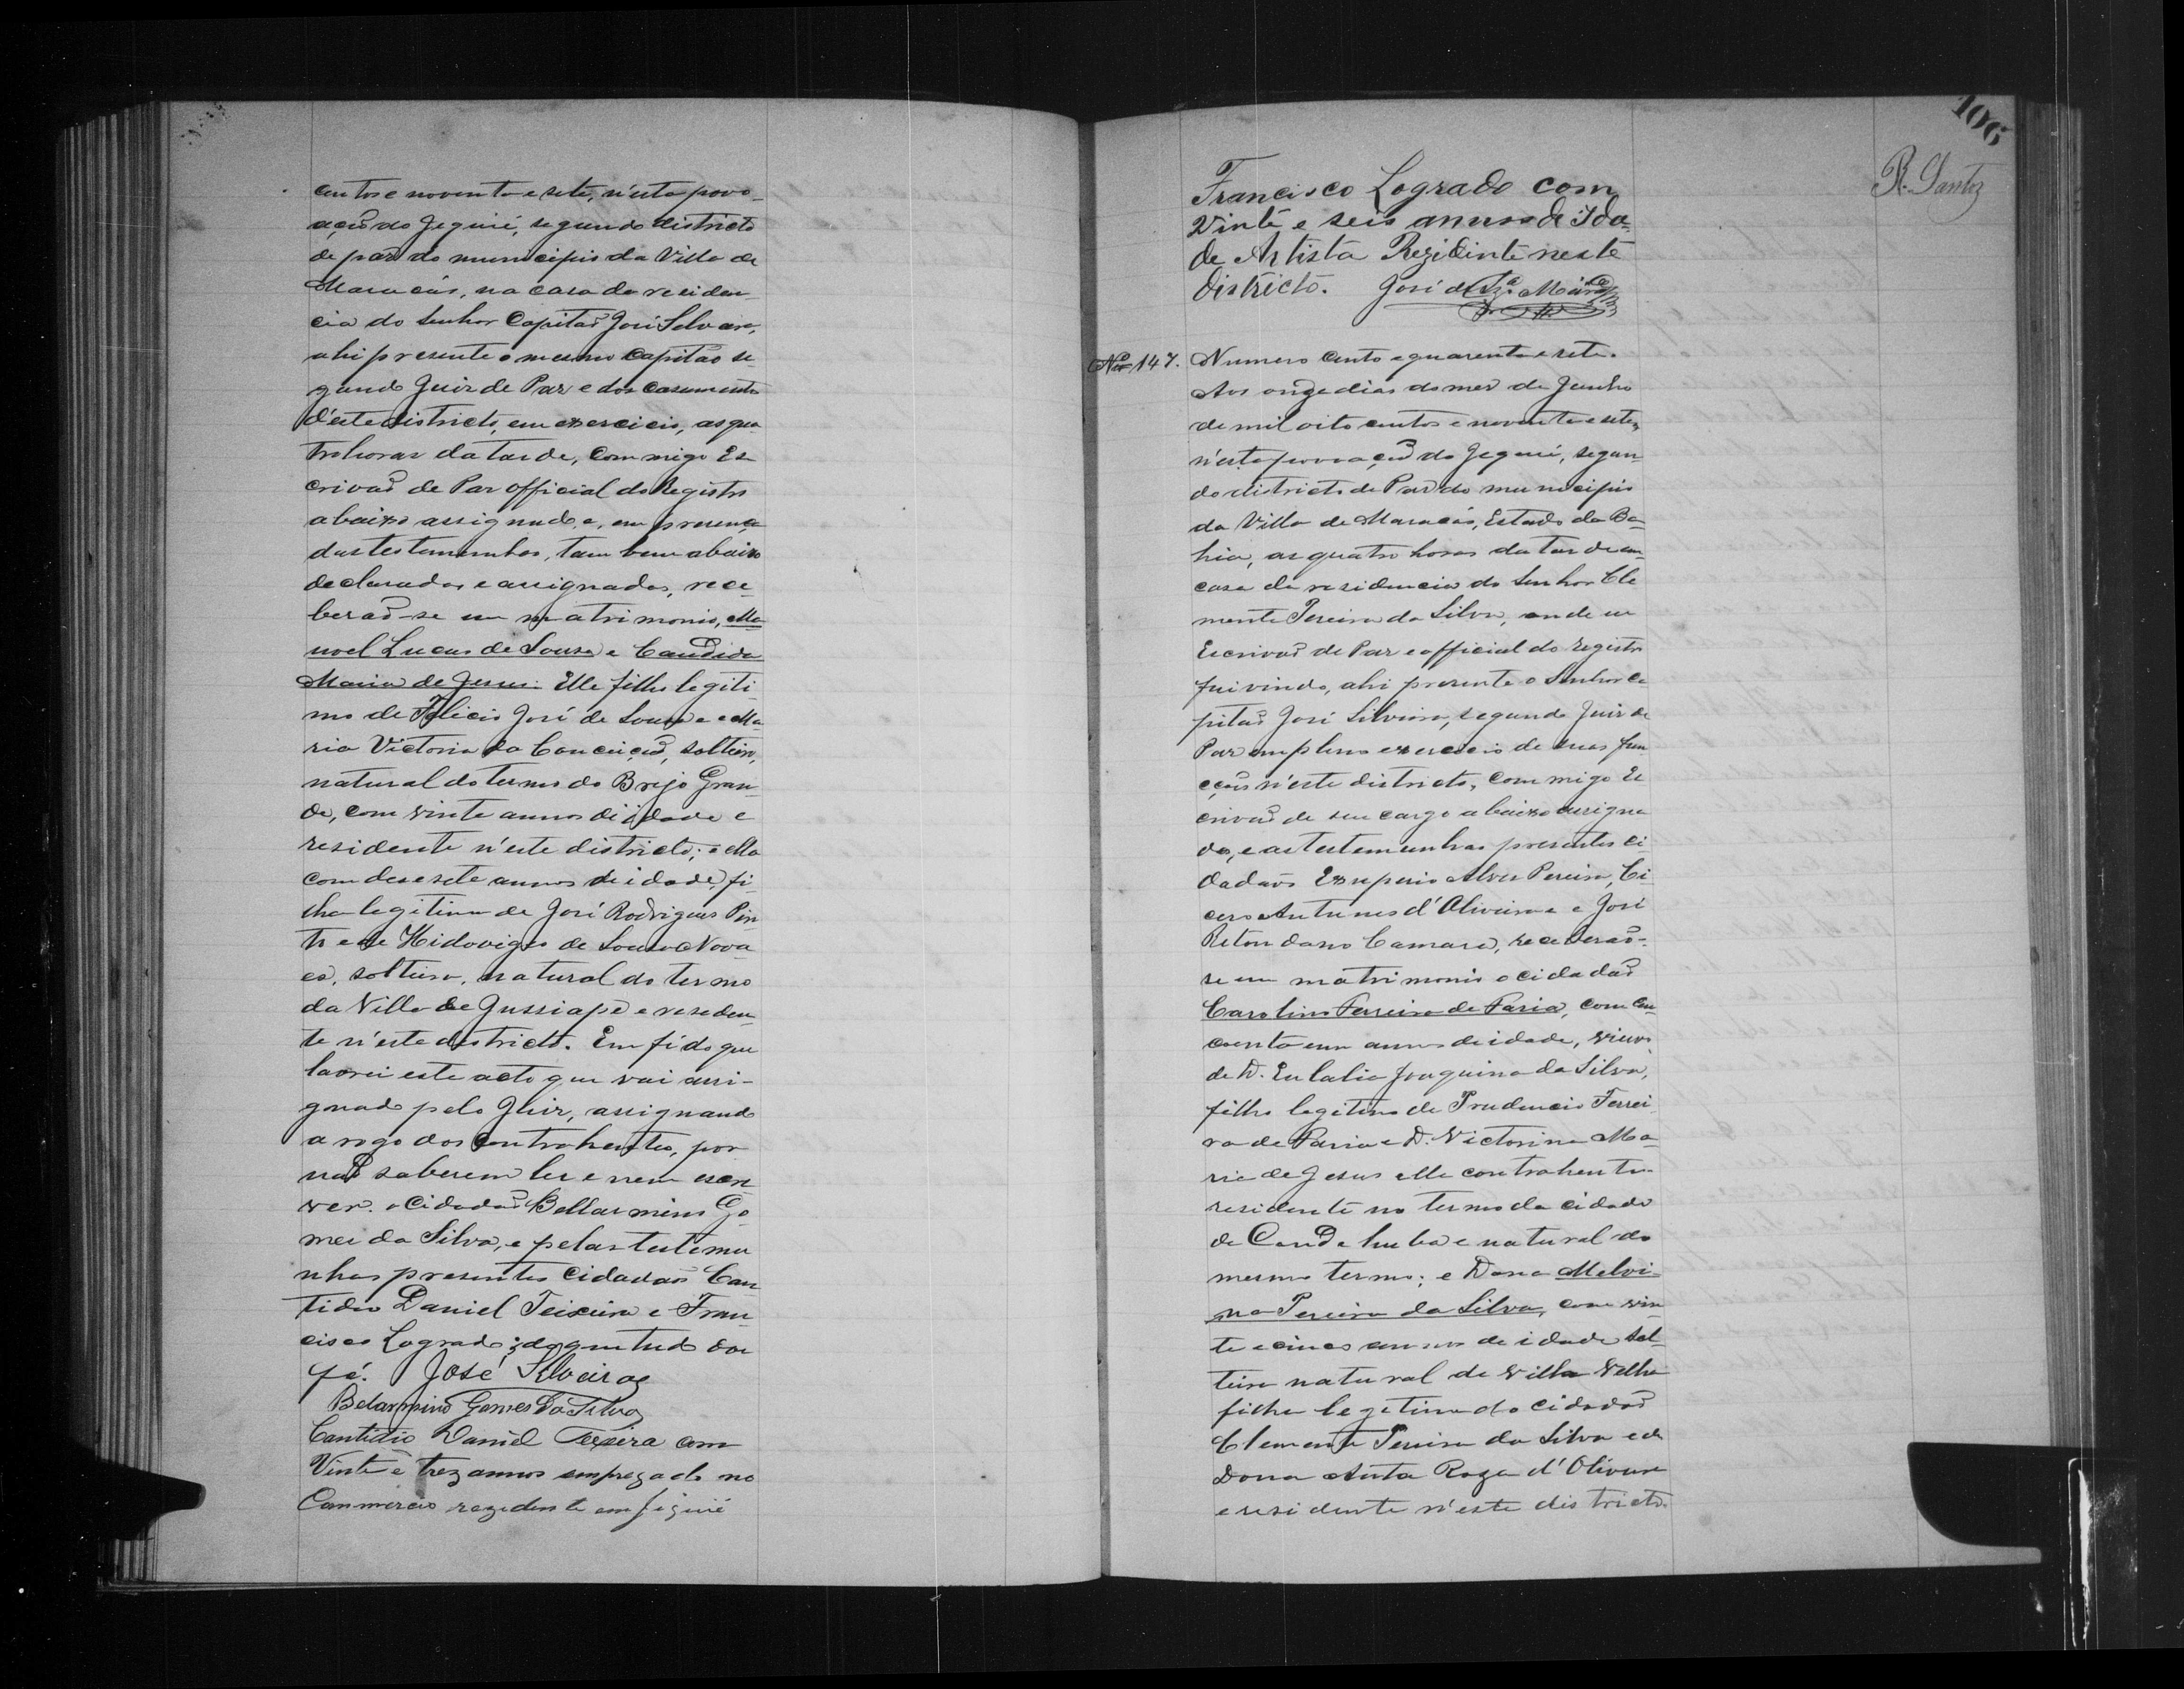 centos e noventa e sete, n'esta povo-
ação do Jequié, segundo districto
de paz do municipio da Villa de
Maracás, na casa da residen-
cia do Senhor Capitaõ José Silveira,
ahi presente o mesmo Capitão se-
gundo Juiz de Paz e dos casamentos
d'este districto, em exercicio, as qua-
tro horas da tarde, commigo Es-
crivaõ de Paz official do Registro
abaixo assignado, e, em presença
das testemunhas, tam bem abaixo
declaradas e assignadas, rece-
beraõ-se em matrimonio, Ma-
noel Lucas de Souza e Candida
Maria de Jesus. Elle filho legiti-
mo de Felicio José de Souza e Ma-
ria Victoria da Conceição, solteiro,
natural do termo do Brejo Gran-
de, com vinte annos de idade e
residente n'este districto; e Ella
com desesete annos de idade, fi-
lha legitima de José Rodrigues Pin-
to e de Hidoviges de Souza Nova-
es, solteira, natural do termo
da Villa de Jussiape e reseden-
te n'este destricto. Em fé do que
lavrei este acto que vai assi-
gnado pelo Juiz, assignando
a rogo dos contrahentes, por
naõ saberem ler e nem escre-
ver o Cidadaõ Bellarmino Go-
mes da Silva, e pelas testemu-
nhas presentes Cidadaõs Can-
tidio Daniel Teixeira e Fran-
cisco Logrado; do que tudo dou
fé. José Silveira
Belarmino Gomes Da Silva
Cantidio Daniel Texeira com
Vinte e trez annos empregado no
Commercio rezidente em Jiquié
106
R. Santos
Francisco Logrado com
Vinte e seis annos de Ida-
de Artista Rezidinte neste
Districto. José de Sza
No 147. Numero cento e quarenta e sete.
Aos onze dias do mes de Junho
de mil oito centos e noventa e sete,
n'esta povoação do Jequié, segun-
do districto de Paz do municipio
da Villa de Maracás, Estado da Ba-
hia, as quatro horas da tarde em
casa da residencia do Senhor Cle-
mente Pereira da Silva, onde eu
Escrivaõ de Paz e official do registro
fui vindo, ahi presente o Senhor Ca-
pitaõ José Silveira, segundo Juiz de
Paz em pleno exercicio de suas fun-
cções n'este districto, commigo Es-
crivaõ de seu cargo abaixo assigna-
do, e as testemunhas presentes ci-
dadaõs Exuperio Alves Pereira, Ci-
cero Antunes d'Oliveira e José
Camara, receberaõ-
se em matrimonio o cidadaõ
Carolino Ferreira de Faria, com cin-
coenta e um annos de idade, viuvo
de D. Eulalia Joaquina da Silva,
filho legitimo de Prudencio Ferrei-
ra de Faria e D. Victorina Ma-
ria de Jesus elle contrahente
residente no termo da cidade
de Condehuba e natural do
mesmo termo; e Dona Melvi-
na Pereira da Silva, com vin-
te e cinco annos de idade sol-
teira natural de Villa Velha
filha legetima do cidadaõ
Clemente Pereira da Silva e de
Dona Anta Roza d'Olivera
e residente n'este districto.